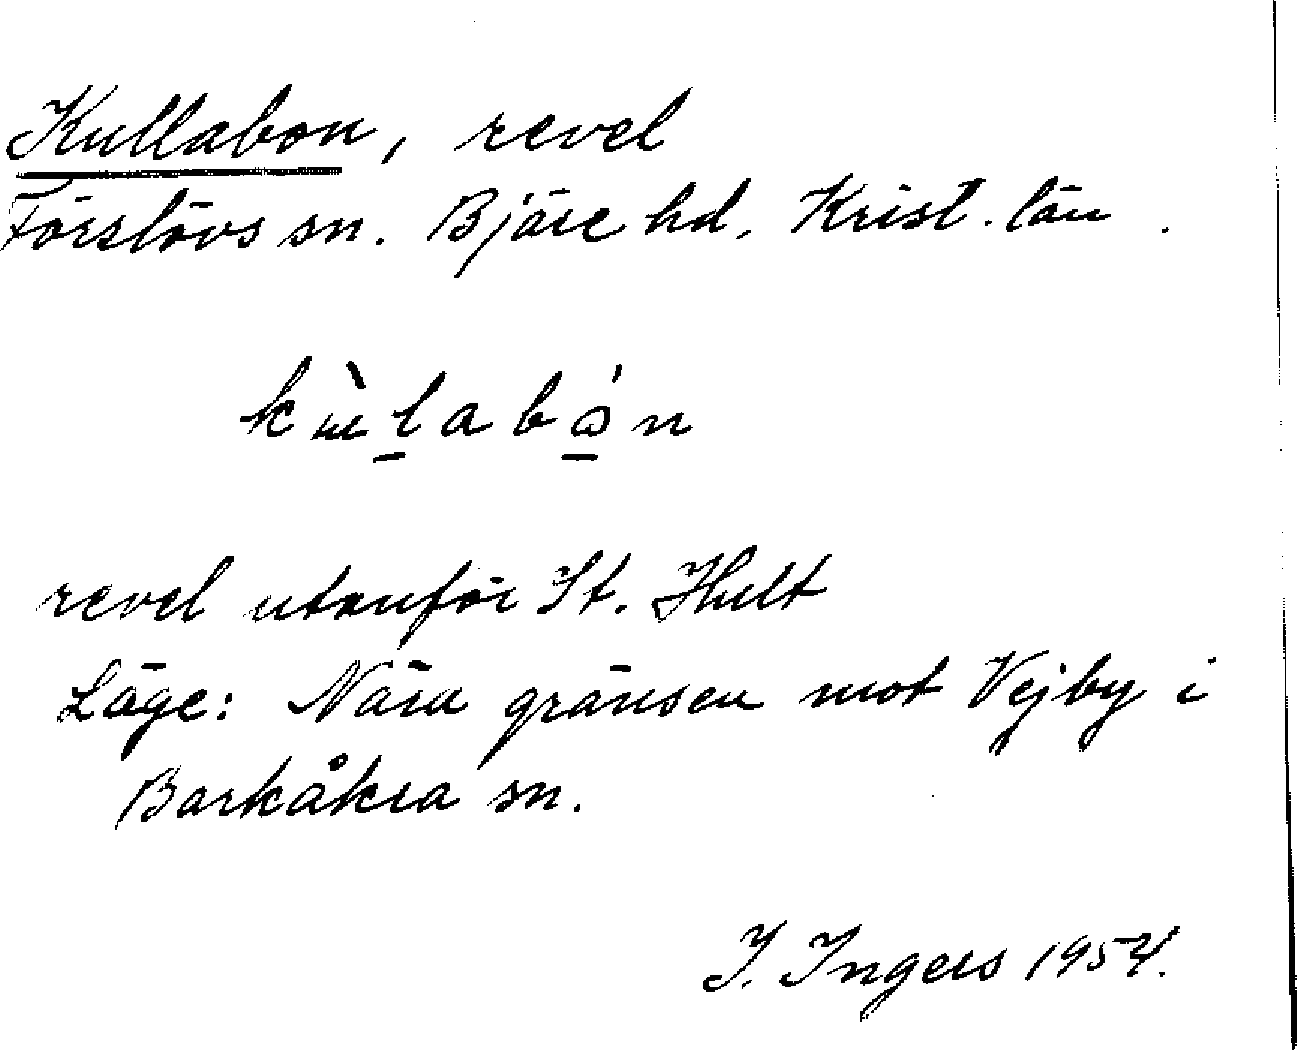 Kullabon, revel
Förslövs sn. Bjäre hd, Krist. län.
kùlabón
revel utanför St. Hult
Läge: Nära gränsen mot Vejby i
Barkåkra sn.
I. Ingers 1954.